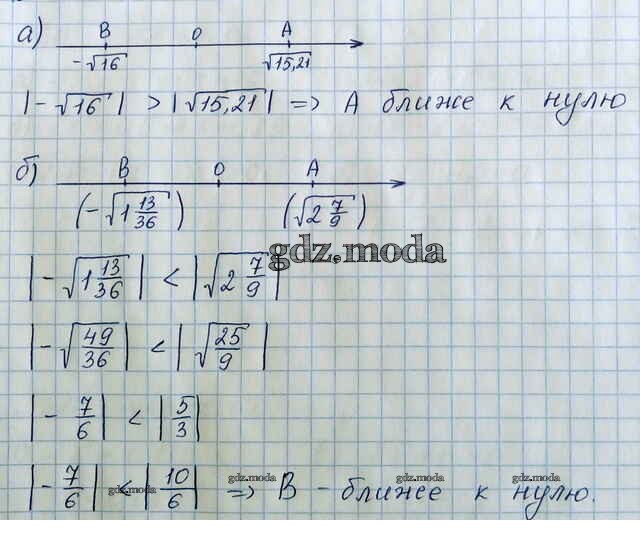 а) B O A
-√16 √15,21
|-√16| > |√15,21| => A ближе к нулю
б) B O A
(-√1 13/36) (√2 7/9)
gdz.moda
|-√1 13/36| < |√2 7/9|
|-√49/36| < |√25/9|
|- 7/6| < |5/3|
|- 7/6| < |10/6| => B - ближе к нулю.
gdz.moda gdz.moda gdz.moda gdz.moda